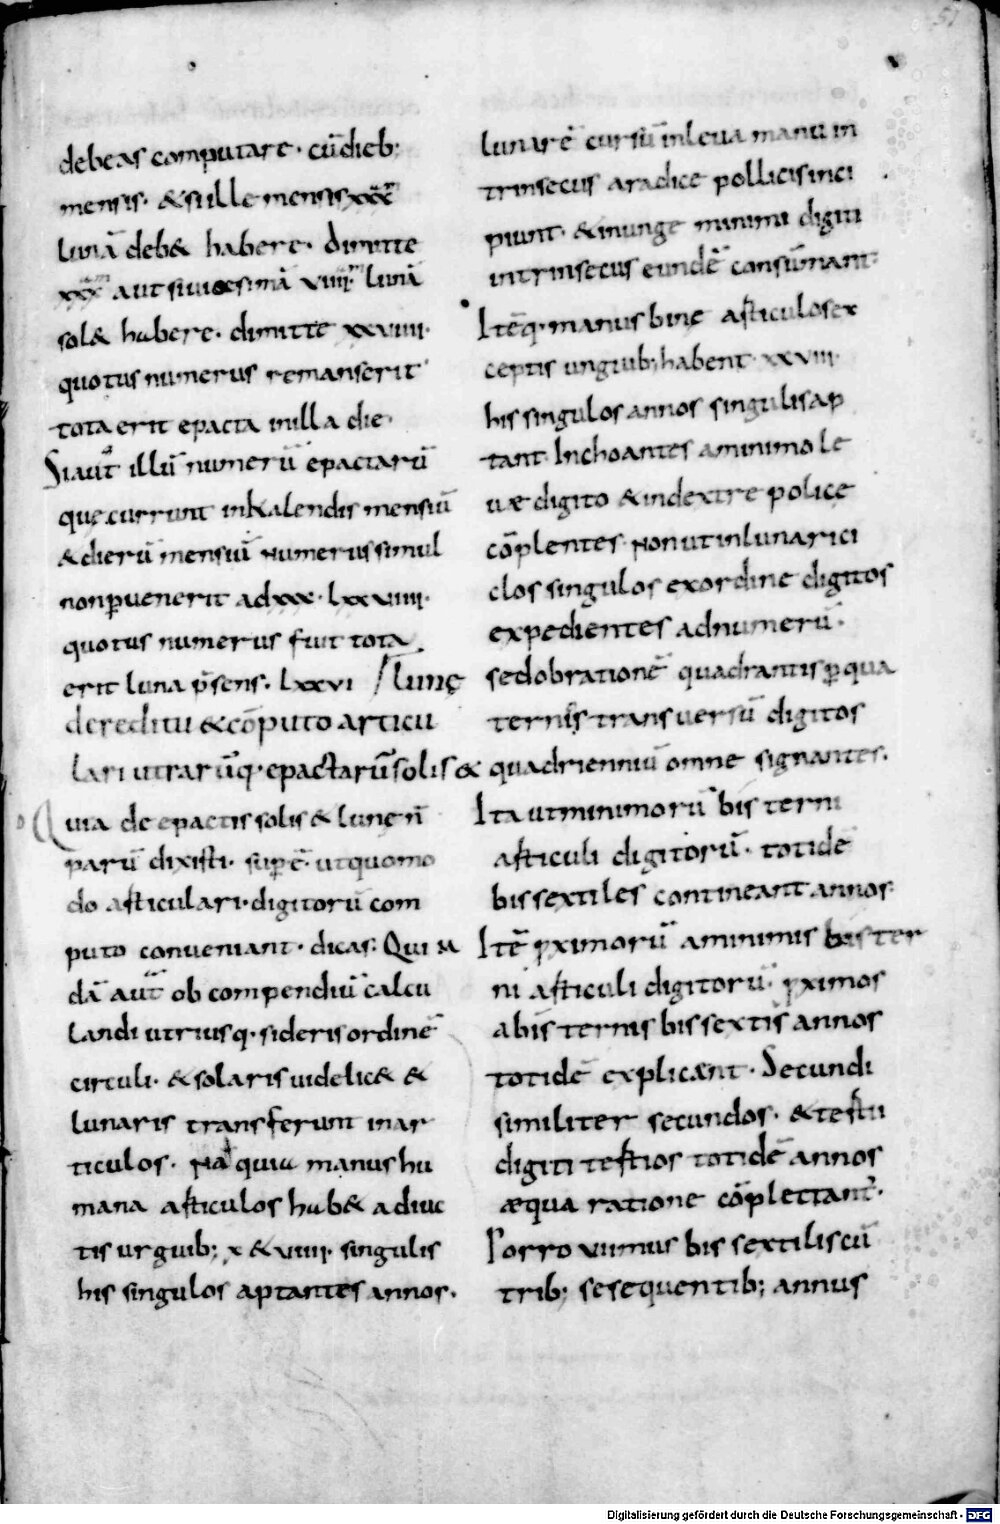 57
debeas computare· cū dieb;
mensis· & si ille mensis xxx
lunā deb& habere· dimitte
xxx aut si uicesimā uiiii lunā
sol& habere· dimitte xxuiiii·
quotus numerus remanserit
tota erit epacta in illa die·
Si aut illū numerū epactarū
que currunt in kalendis mensiū
& dierū mensiū numerus simul
non puenerit ad xxx· lxxuiiii·
quotus numerus fuit tota
erit luna p̄sens· lxxvi / lunę
de reditu & cōputo articu
lari utrarūq· epactarū solis &
Quia de epactis solis & lune n̄
parū dixisti· supē· ut quomo
do articulari· digitorū com
puto conueniant· dicas: Qui
dā aut̄ ob compendiū calcu
landi utriusq· sideris ordinē
circuli· & solaris uidelic& &
lunaris transferunt in ar
ticulos· Nā quia manus hu
mana articulos hab& adiuc
tis urguib; x & uiiii· singulis
his singulos aptantes annos·
lunarē cursū in leua manu in
trinsecus a radice pollicis inci
piunt· & inunge minimi digiti
intrinsecus eundē consūmant·
Itēq· manus bine articulos ex
ceptis unguib; habent xxuiii·
his singulos annos singulis ap
tant· Inchoantes a minimo le
uæ digito & in dextre police
cōplentes· Non ut in lunari ci
clos singulos ex ordine digitos
expedientes ad numerū·
sed ob rationē quadrantis p qua
ternis transuersū digitos
quadrienniū omne signantes·
Ita ut minimorū bis terni
articuli digitorū· totidē
bissextiles contineant annos·
Itē pximorū a minimis bis ter
ni articuli digitorū· pximos
a bis ternis bissextis annos
totidē explicant· Secundi
similiter secundos· & tertii
digiti tertios totidē annos
æqua ratione cōplectant·
Porro unus bissextilis cū
trib; se sequentib; annus
Digitalisierung gefördert durch die Deutsche Forschungsgemeinschaft - DFG